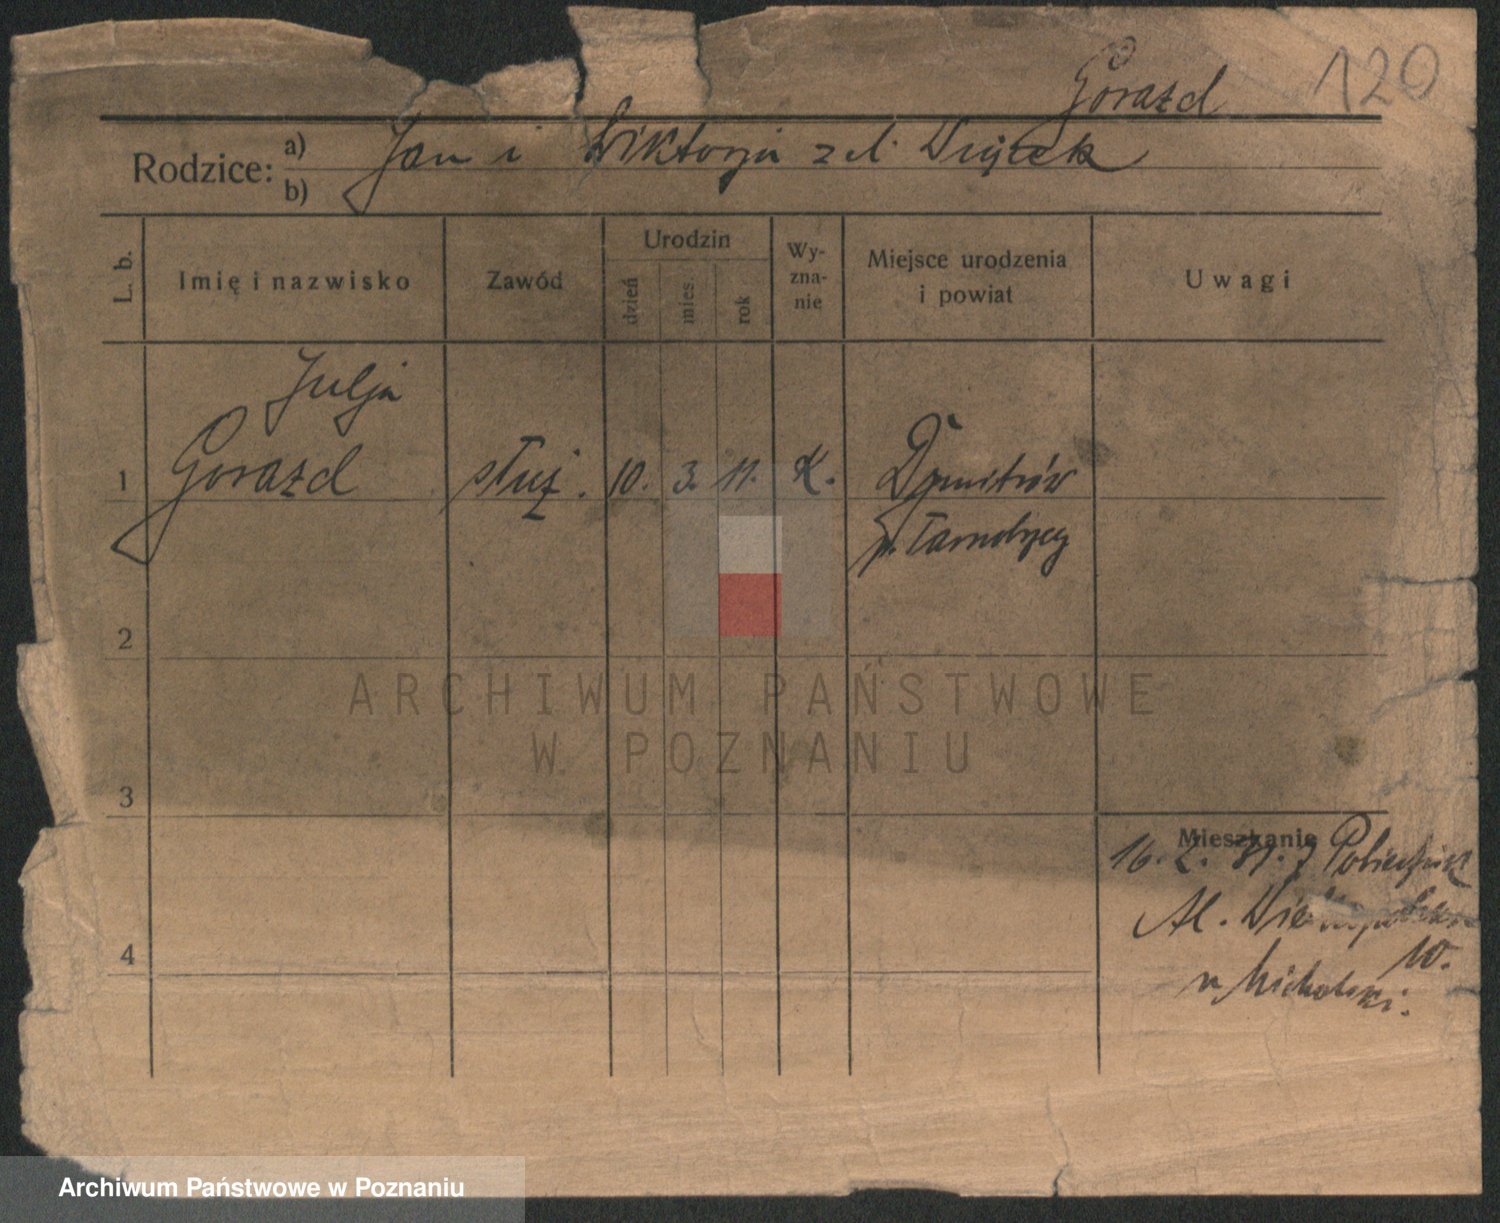 120
Gorazd
Rodzice: a) Jan i Wiktorja z d. Wiącek
b)
L. b. Imię i nazwisko Zawód Urodzin dzień mies. rok Wyznanie Miejsce urodzenia i powiat Uwagi
Julja
1 Gorazd służ. 10. 3. 11. K. Dymitrów
p. Tarnobrzeg
2
ARCHIWUM PAŃSTWOWE
W POZNANIU
3
Mieszkanie
16. 2. 31. z Pobiedzisk
Al. Wielkopolska
10.
u Michalski.
4
Archiwum Państwowe w Poznaniu